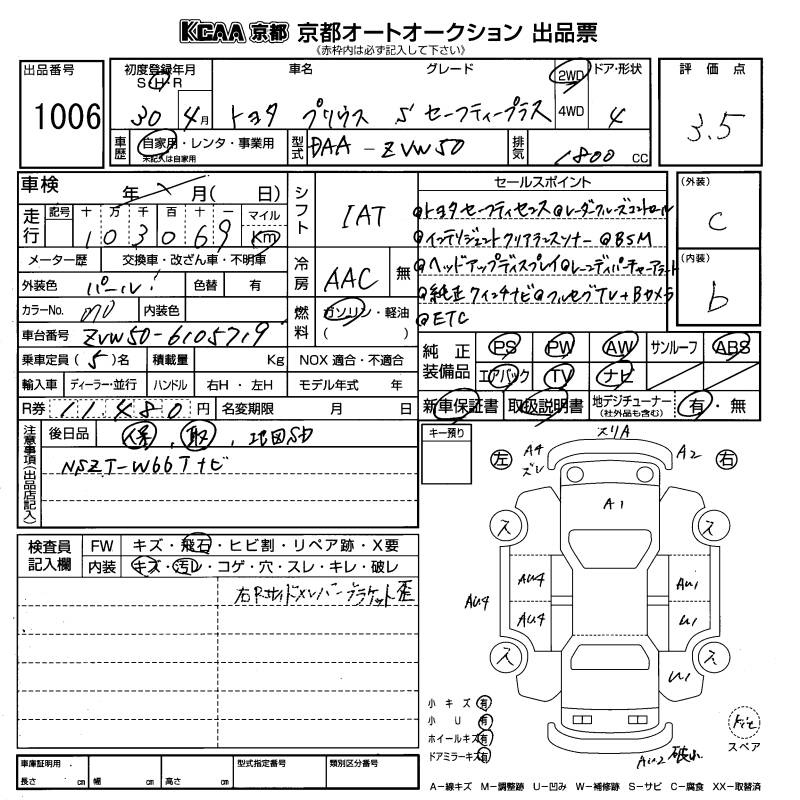 KCAA 京都 京都オートオークション 出品票
《赤枠内は必ず記入して下さい》
出品番号
1006
初度登録年月
S H R
30 4月
車名
グレード
トヨタ プリウス S セーフティープラス
2WD
4WD
ドア・形状
4
評価点
3.5
車歴
自家用・レンタ・事業用
未記入は自家用
型式
DAA-ZVW50
排気
1800 CC
車検
年 月( 日)
走行
記号 十 万 千 百 十 一
103069
マイル
Km
メーター歴
交換車・改ざん車・不明車
外装色
パール
色替
有
カラーNo.
070
内装色
車台番号
ZVW50-6105719
乗車定員(5)名
積載量
Kg
NOX 適合・不適合
輸入車
ディーラー・並行
ハンドル
右H・左H
モデル年式 年
R券
11,480円
名変期限
月 日
シフト
IAT
冷房
AAC
無
燃料
ガソリン・軽油
( )
セールスポイント
@トヨタセーフティセンス@レーダークルーズコントロール
@インテリジェントクリアランスソナー @BSM
@ヘッドアップディスプレイ@レーンディパーチャーアラート
@純正9インチナビ@フルセグTV+Bカメラ
@ETC
(外装)
C
(内装)
b
純正装備品
PS PW AW サンルーフ ABS
エアバック TV ナビ
新車保証書
取扱説明書
地デジチューナー
(社外品も含む)
有・無
注意事項(出品店記入)
後日品
保、取、地図SD
NSZT-W66Tナビ
キー預り
検査員記入欄
FW
キズ・飛石・ヒビ割・リペア跡・X要
内装
キズ・汚レ・コゲ・穴・スレ・キレ・破レ
右Rサイドメンバーブラケット歪
スリA
A4
ズレ
左
A2
右
A1
ス
ス
AU4
AU4
AU4
AU1
U1
ス
ス
U1
小キズ 有
小U 有
ホイールキズ 有
ドアミラーキズ 有
スペア
AU2
車庫証明用
長さ cm
幅 cm
高さ cm
型式指定番号
類別区分番号
A-線キズ M-調整跡 U-凹み W-補修跡 S-サビ C-腐食 XX-取替済